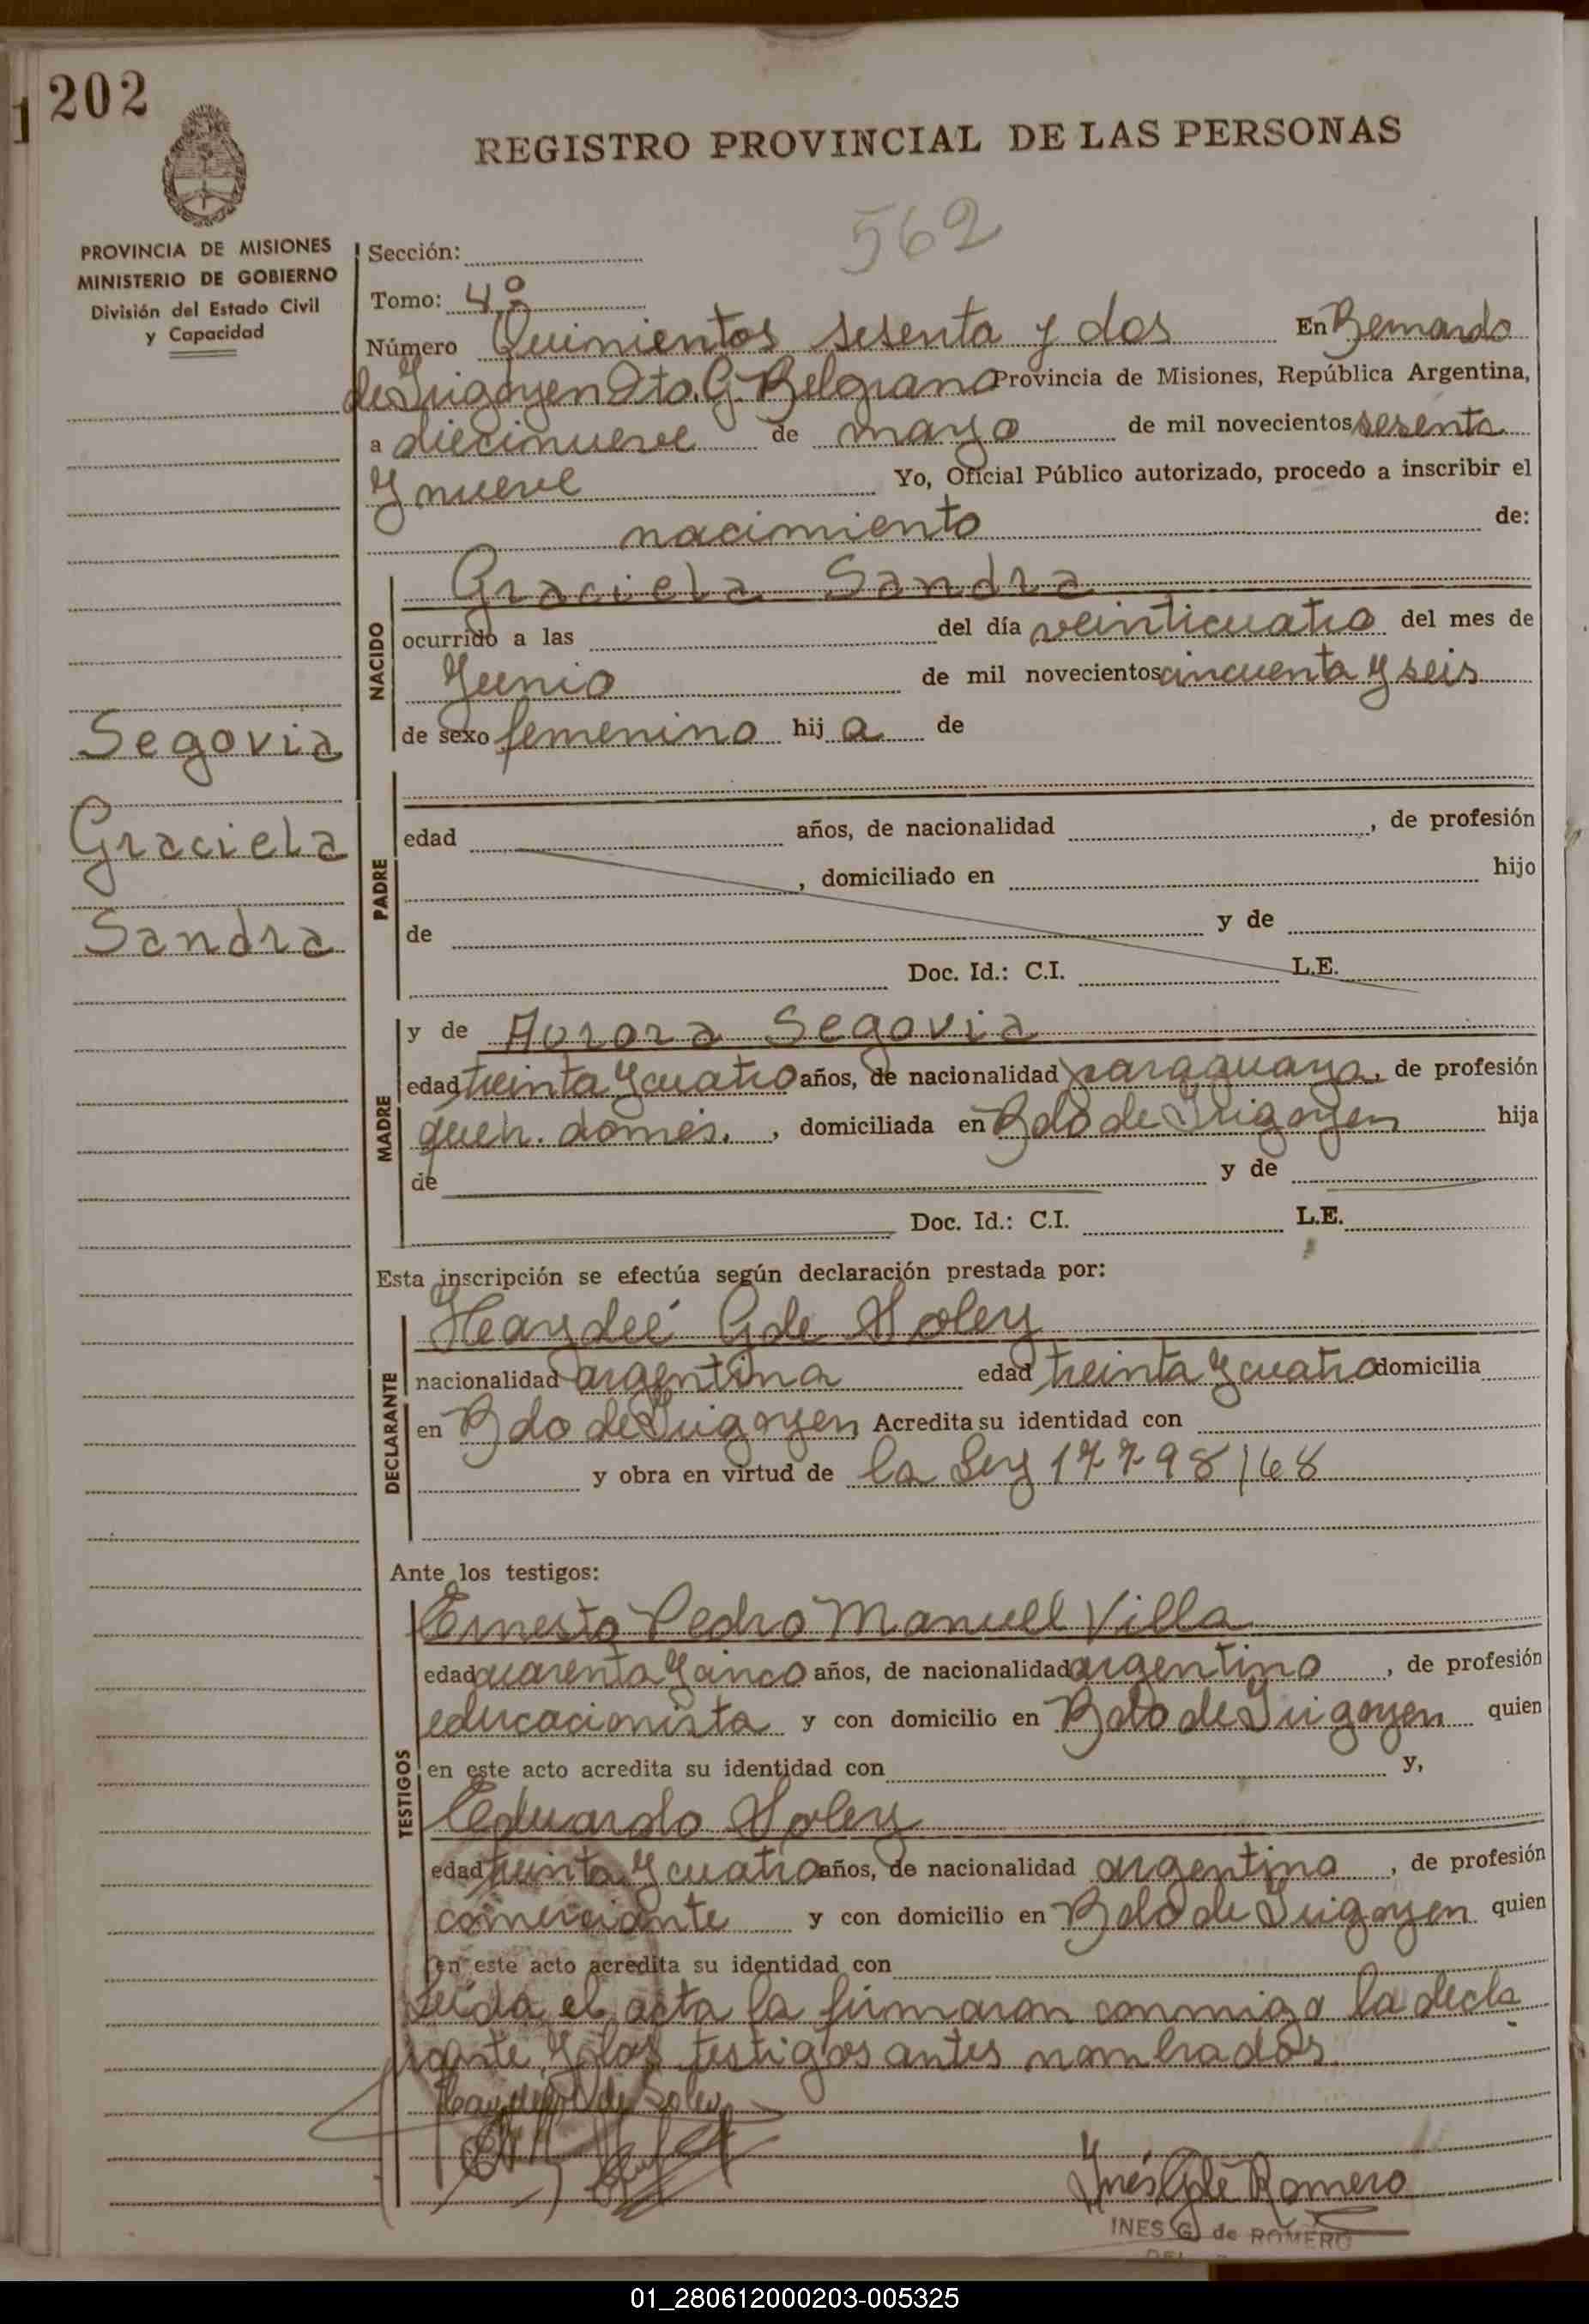 202
1
REGISTRO PROVINCIAL DE LAS PERSONAS
562
PROVINCIA DE MISIONES
MINISTERIO DE GOBIERNO
División del Estado Civil
y Capacidad
Sección:
Tomo: 4º
Número Quinientos sesenta y dos En Bernardo
de Irigoyen Dto. G. Belgrano Provincia de Misiones, República Argentina,
a diecinueve de mayo de mil novecientos sesenta
y nueve Yo, Oficial Público autorizado, procedo a inscribir el
nacimiento de:
NACIDO
Graciela Sandra
ocurrido a las del día veinticuatro del mes de
Junio de mil novecientos cincuenta y seis
de sexo femenino hij a de
Segovia
Graciela
Sandra
PADRE
edad años, de nacionalidad , de profesión
, domiciliado en hijo
de y de
Doc. Id.: C.I. L.E.
MADRE
y de Aurora Segovia
edad treinta y cuatro años, de nacionalidad paraguaya, de profesión
queh. domés. , domiciliada en Bdo de Irigoyen hija
de y de
Doc. Id.: C.I. L.E.
Esta inscripción se efectúa según declaración prestada por:
DECLARANTE
Haydeé G de Soley
nacionalidad argentina edad treinta y cuatro domicilia
en Bdo de Irigoyen Acredita su identidad con
y obra en virtud de la Ley 17798/68
Ante los testigos:
TESTIGOS
Ernesto Pedro Manuell Villa
edad cuarenta y cinco años, de nacionalidad argentino , de profesión
educacionista y con domicilio en Bdo de Irigoyen quien
en este acto acredita su identidad con y,
Eduardo Soley
edad treinta y cuatro años, de nacionalidad argentino , de profesión
comerciante y con domicilio en Bdo de Irigoyen quien
en este acto acredita su identidad con
Leída el acta la firmaron conmigo la decla
rante y los testigos antes nombrados.
Haydeé G de Soley
Inés G de Romero
INES G. de ROMERO
01_280612000203-005325